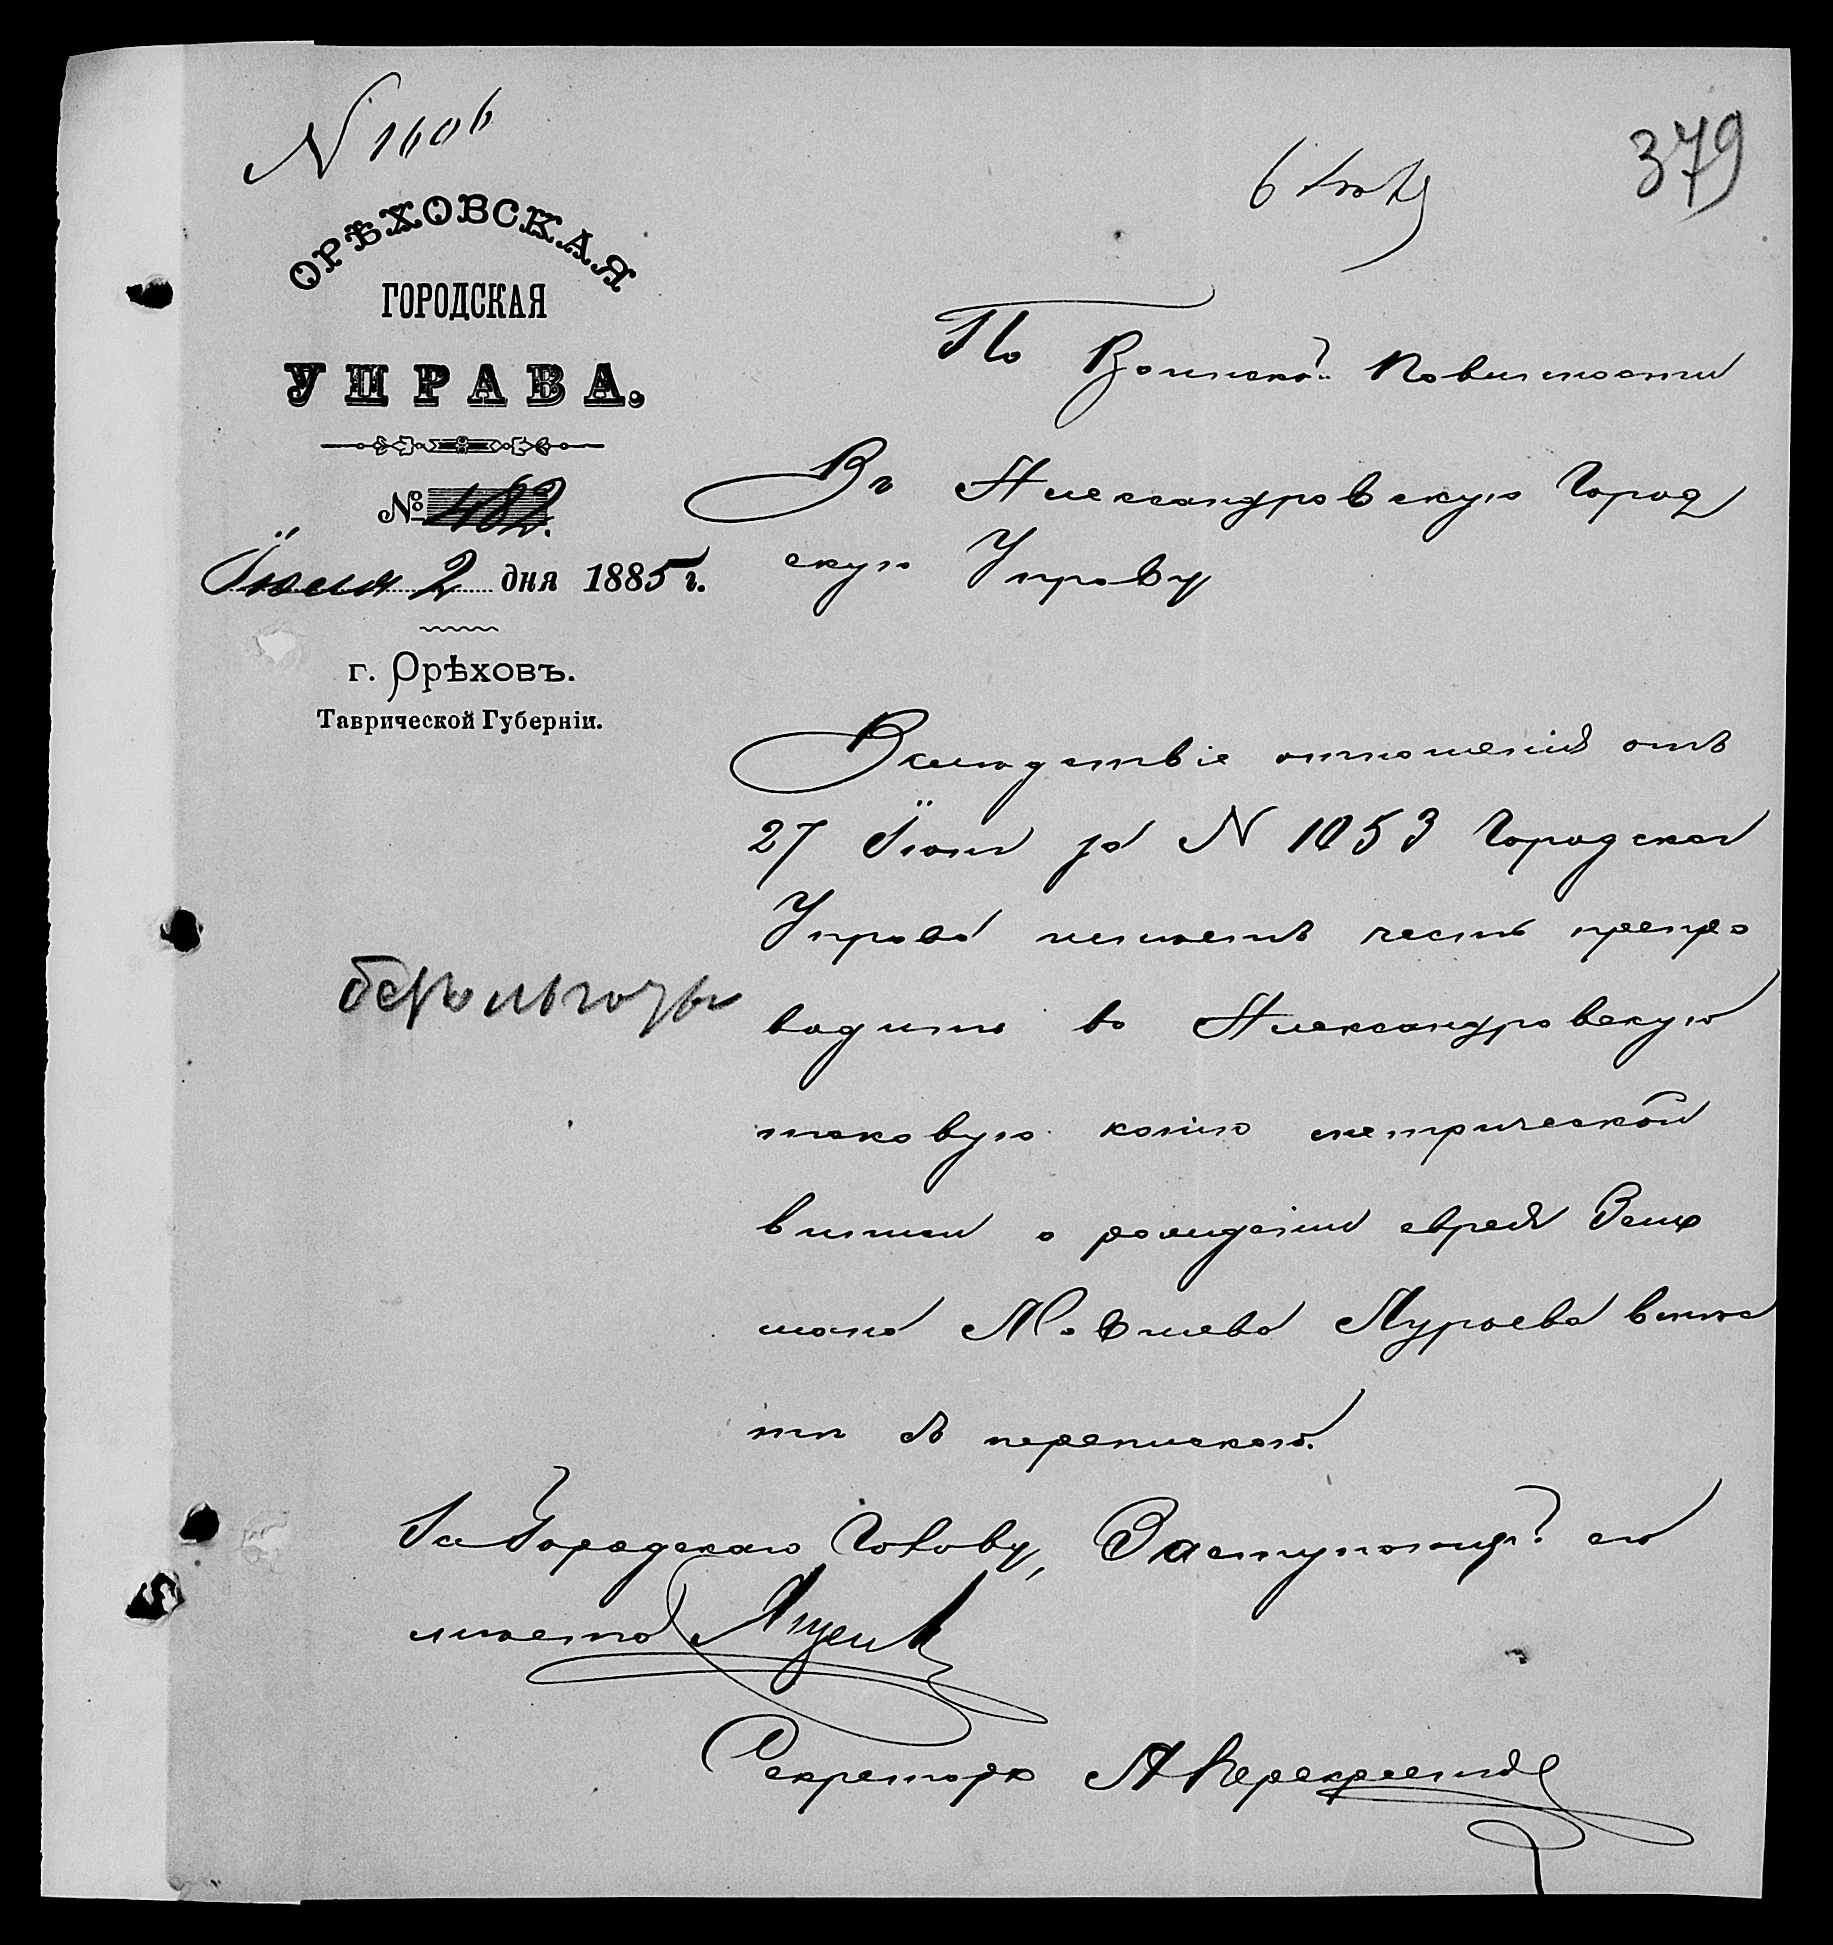 N 1606
6 Іюля
379
ОРѢХОВСКАЯ
ГОРОДСКАЯ
УПРАВА.
№ 482.
Іюля 2 дня 1885 г.
г. Орѣховъ.
Таврической Губерніи.
По Воинской Повинности
Въ Александровскую Город
скую Управу
Вслѣдствіе отношенія отъ
27 Іюня за N 1053 Городская
Управа имѣетъ честь препро
водить въ Александровскую
таковую копію метрической
выписи о рожденіи еврея
Мовшева вмѣс
тѣ съ перепискою.
За Городскаго Голову, Заступающій его
мѣсто
Секретарь А Перекрестовъ